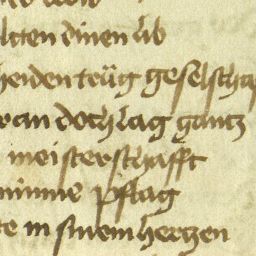 lten dinen lib
heiden trüg geselscha
ran doch lag gantz
meisterschafft
minne pflag
te in sinem hertzen